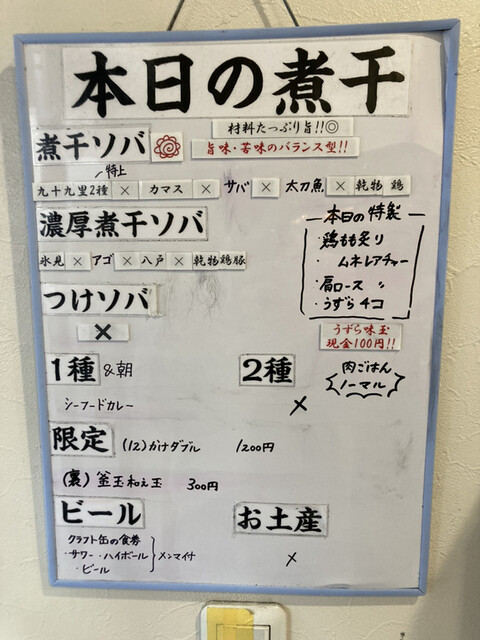 本日の煮干
材料たっぷり旨!!◎
煮干ソバ
旨味・苦味のバランス型!!
特上
九十九里2種 × カマス × サバ × 太刀魚 × 乾物 鶏
濃厚煮干ソバ
氷見 × アゴ × 八戸 × 乾物鶏豚
本日の特製
・鶏もも炙り
・ムネレアチャー
・肩ロース 〃
・うずら4コ
つけソバ
×
うずら味玉
現金100円!!
1種 &朝
シーフードカレー
2種
×
肉ごはん
ノーマル
限定 (12)かけダブル 1200円
(裏) 釜玉和え玉 300円
ビール
クラフト缶の食券
・サワー ・ハイボール
・ビール
メンマイナ
お土産
×